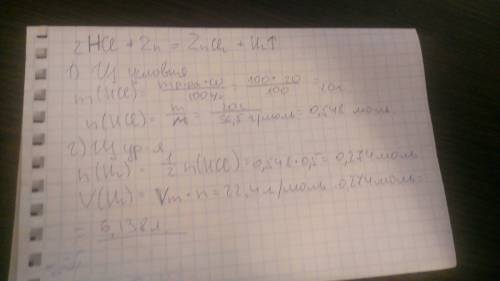 2HCl + Zn = ZnCl₂ + H₂↑
1) Из условия
m(HCl) = m(р-ра)·ω / 100% = 100·20 / 100 = 20г
n(HCl) = m / M = 20г / 36,5 г/моль = 0,548 моль
2) Из ур-я
n(H₂) = 1/2 n(HCl) = 0,548·0,5 = 0,274 моль
V(H₂) = Vm·n = 22,4 л/моль · 0,274 моль =
= 6,138 л